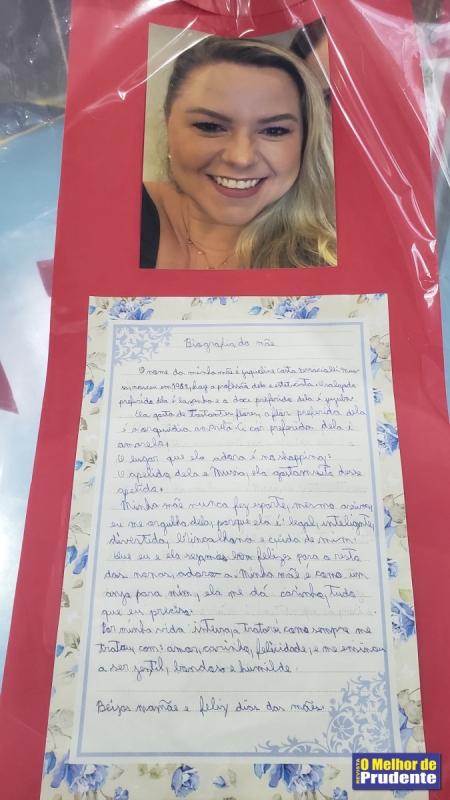 Biografia da mãe
O nome da minha mãe é jaqueline
nasceu em 1982, hoje a profissão dela é esteticista. O salgado
preferido dela é lasanha e o doce preferido dela é
Ela gosta de flores, a flor preferida dela
é a orquídea cor preferida dela é
amarela.
O lugar que ela adora é no shopping.
O apelido dela é ela gosta muito desse
apelido.
Minha mãe nunca fez esporte, mesmo assim
eu me orgulho dela, porque ela é legal, inteligente,
divertida, brincalhona e cuida de mim.
Que eu e ela sejamos bem felizes para o resto
das nossas, Minha mãe é como um
anjo para mim, ela me dá carinho, tudo
que eu preciso.
Por minha vida inteira, tratarei como sempre me
tratou com: amor, carinho, felicidade, e me ensinou
a ser gentil, bondoso e humilde.
Beijos mamãe e feliz dias das mães.
REVISTA
O Melhor de
Prudente